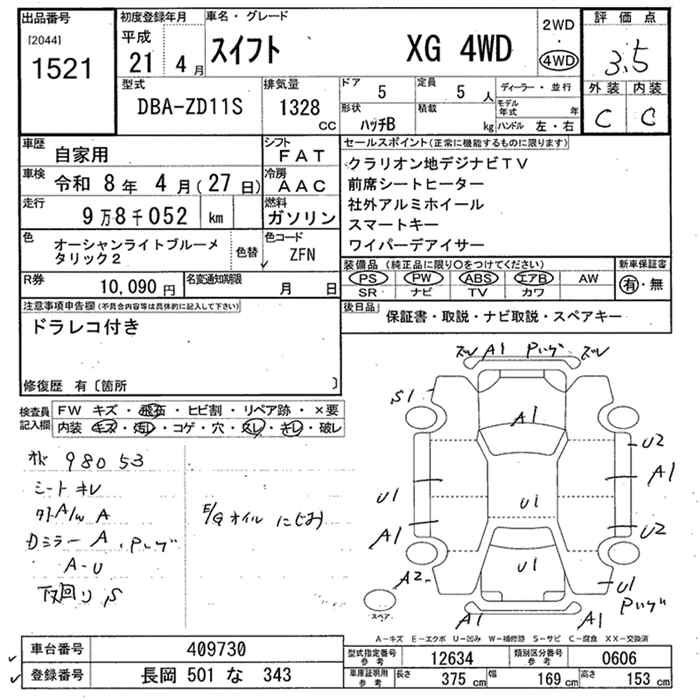 出品番号 初度登録年月 車名・グレード 2WD 評価点
[2044] 平成 ・
1521 21 4月 スイフト XG 4WD 4WD 3.5
型式 排気量 ドア 5 定員 5人 ディーラー・並行 外装 内装
DBA-ZD11S 1328cc 形状 ハッチB 積載 kg モデル年式 年 C C
ハンドル 左・右
車歴 自家用 シフト FAT セールスポイント(正常に機能するものに限ります)
車検 令和 8年 4月(27日) 冷房 AAC クラリオン地デジナビTV
走行 9万8千052 km 燃料 ガソリン 前席シートヒーター
社外アルミホイール
スマートキー
ワイパーデアイサー
色 オーシャンライトブルーメタリック2 色替 色コード ZFN
装備品(純正品に限り○をつけてください) 新車保証書
PS PW ABS エアB AW 有・無
SR ナビ TV カワ
R券 10,090円 名変通知期限 月 日
後日品 保証書・取説・ナビ取説・スペアキー
注意事項申告欄(不具合内容等は具体的に記入して下さい)
ドラレコ付き
修復歴 有〔箇所 〕
検査員記入欄 FW キズ・飛石・ヒビ割・リペア跡・×要
内装 キズ・汚レ・コゲ・穴・スレ・キレ・破レ
98053
シートキレ
A/W A
Dミラー A
A-U
下回り S
E/Gオイルにじみ
ズレ A1 ズレ
S1
A1
U2
A1
U1
U1
A1
U2
A2
U1
A1
A1
スペア
A-キズ E-エクボ U-凹み W-補修跡 S-サビ C-腐食 XX-交換済
車台番号 409730
登録番号 長岡 501 な 343
型式指定番号 参考 12634 類別区分番号 参考 0606
車庫証明用 参考 長さ 375cm 幅 169cm 高さ 153cm